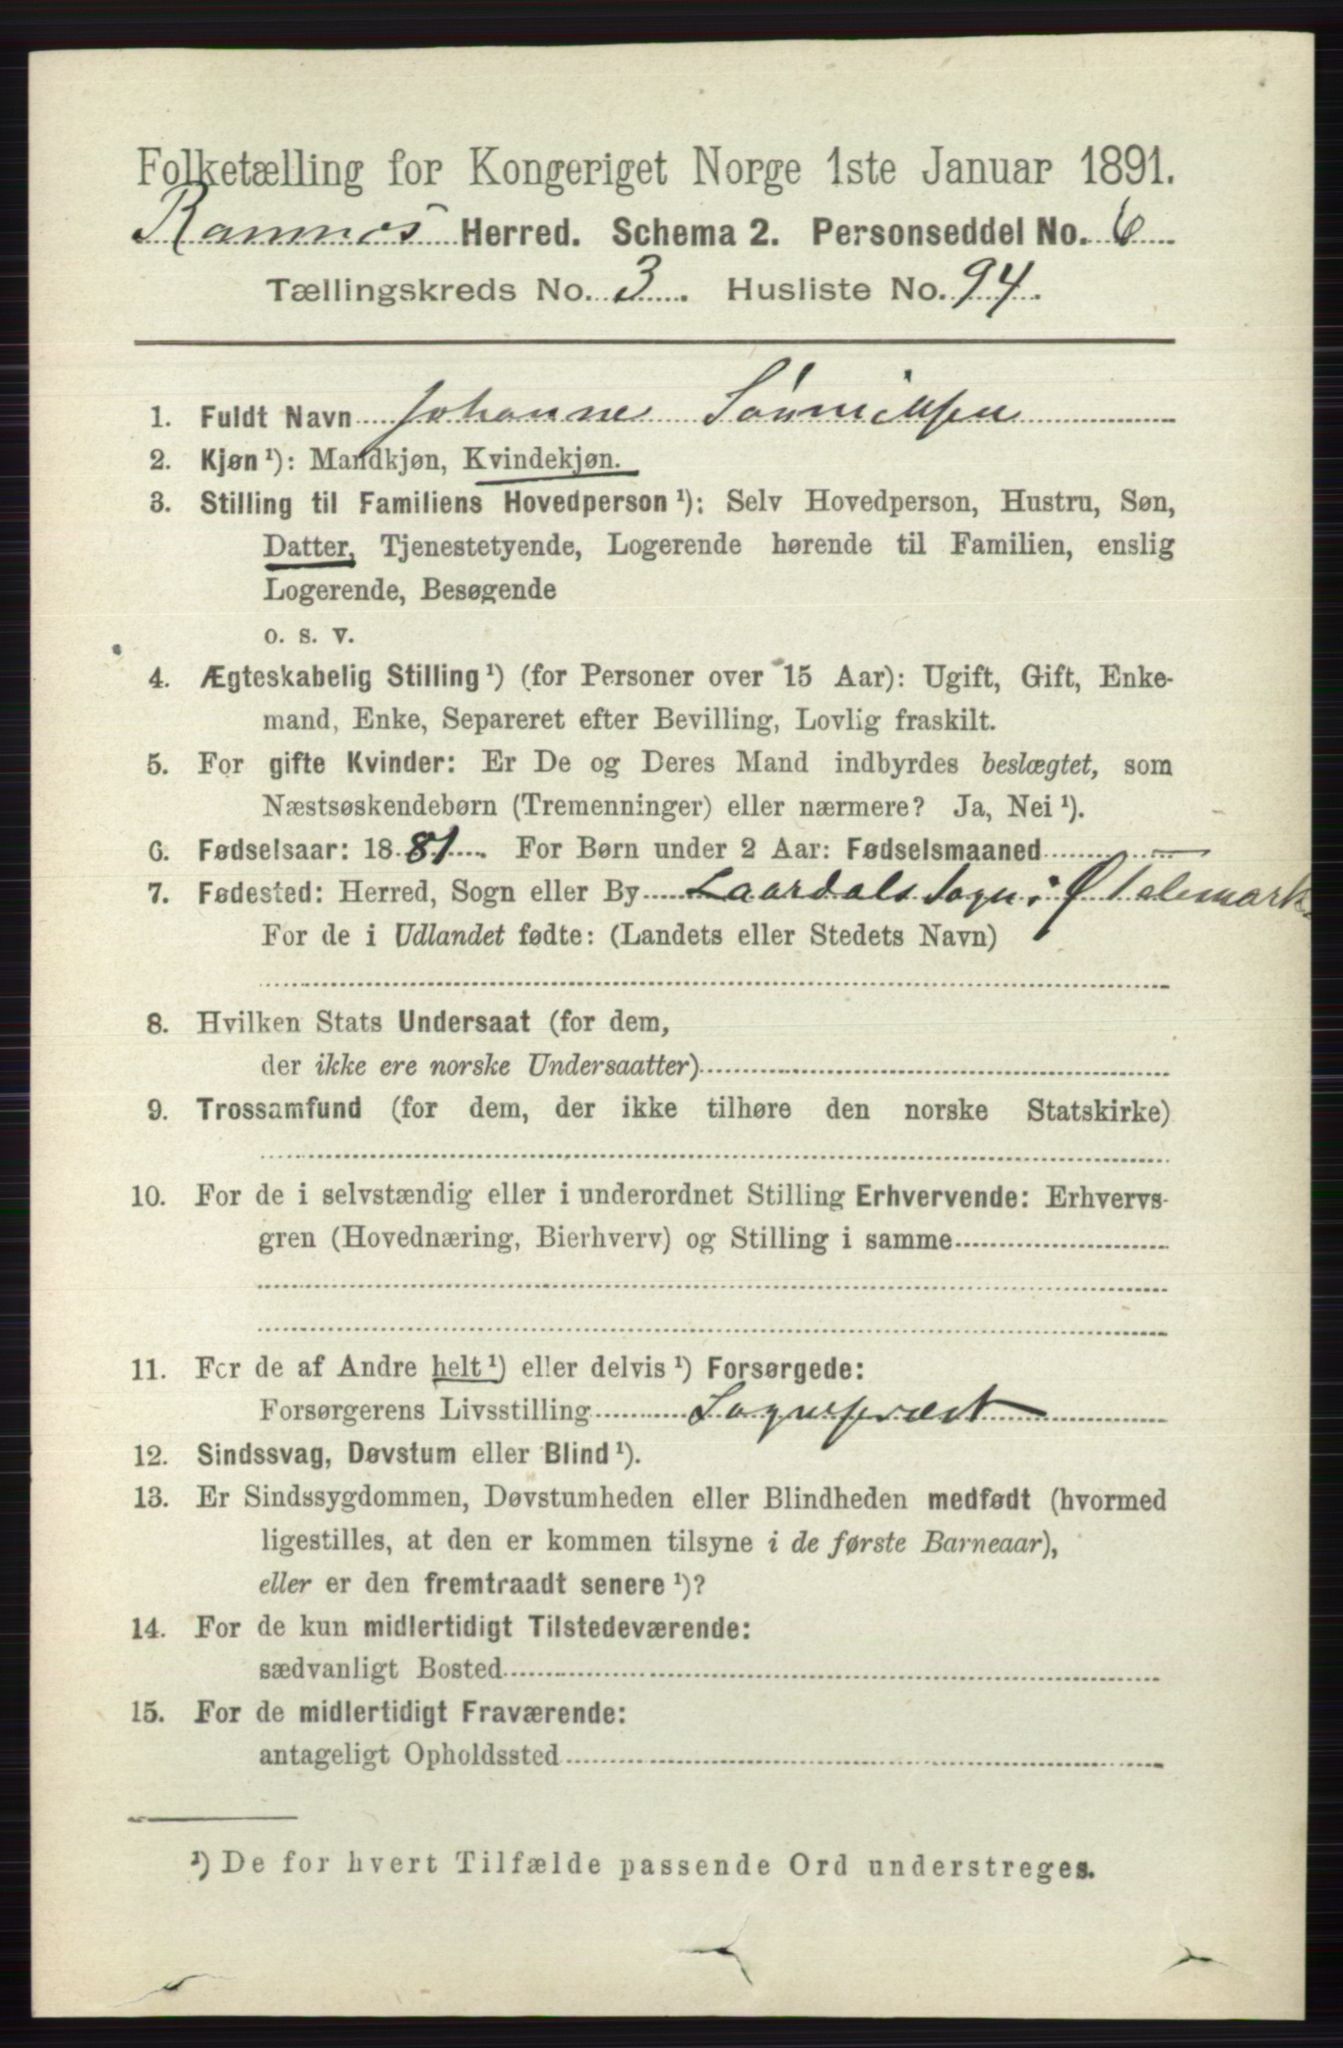 Folketælling for Kongeriget Norge 1ste Januar 1891.
Ramnes Herred. Schema 2. Personseddel No. 6
Tællingskreds No. 3. Husliste No. 94.
1. Fuldt Navn Johanne
2. Kjøn ¹): Mandkjøn, Kvindekjøn.
3. Stilling til Familiens Hovedperson ¹): Selv Hovedperson, Hustru, Søn,
Datter, Tjenestetyende, Logerende hørende til Familien, enslig
Logerende, Besøgende
o. s. v.
4. Ægteskabelig Stilling ¹) (for Personer over 15 Aar): Ugift, Gift, Enke-
mand, Enke, Separeret efter Bevilling, Lovlig fraskilt.
5. For gifte Kvinder: Er De og Deres Mand indbyrdes beslægtet, som
Næstsøskendebørn (Tremenninger) eller nærmere? Ja, Nei ¹).
6. Fødselsaar: 1881. For Børn under 2 Aar: Fødselsmaaned
7. Fødested: Herred, Sogn eller By Laardals Sogn i Ø Telemark
For de i Udlandet fødte: (Landets eller Stedets Navn)
8. Hvilken Stats Undersaat (for dem,
der ikke ere norske Undersaatter)
9. Trossamfund (for dem, der ikke tilhøre den norske Statskirke)
10. For de i selvstændig eller i underordnet Stilling Erhvervende: Erhvervs-
gren (Hovednæring, Bierhverv) og Stilling i samme
11. For de af Andre helt ¹) eller delvis ¹) Forsørgede:
Forsørgerens Livsstilling Sognepræst
12. Sindssvag, Døvstum eller Blind ¹).
13. Er Sindssygdommen, Døvstumheden eller Blindheden medfødt (hvormed
ligestilles, at den er kommen tilsyne i de første Barneaar),
eller er den fremtraadt senere ¹)?
14. For de kun midlertidigt Tilstedeværende:
sædvanligt Bosted
15. For de midlertidigt Fraværende:
antageligt Opholdssted
¹) De for hvert Tilfælde passende Ord understreges.